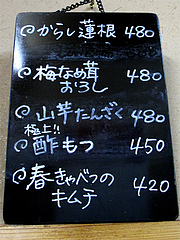 からし蓮根 480
梅なめ茸 480
おろし
山芋たんざく 480
極上!!
酢もつ 450
春きゃべつの 420
キムチ